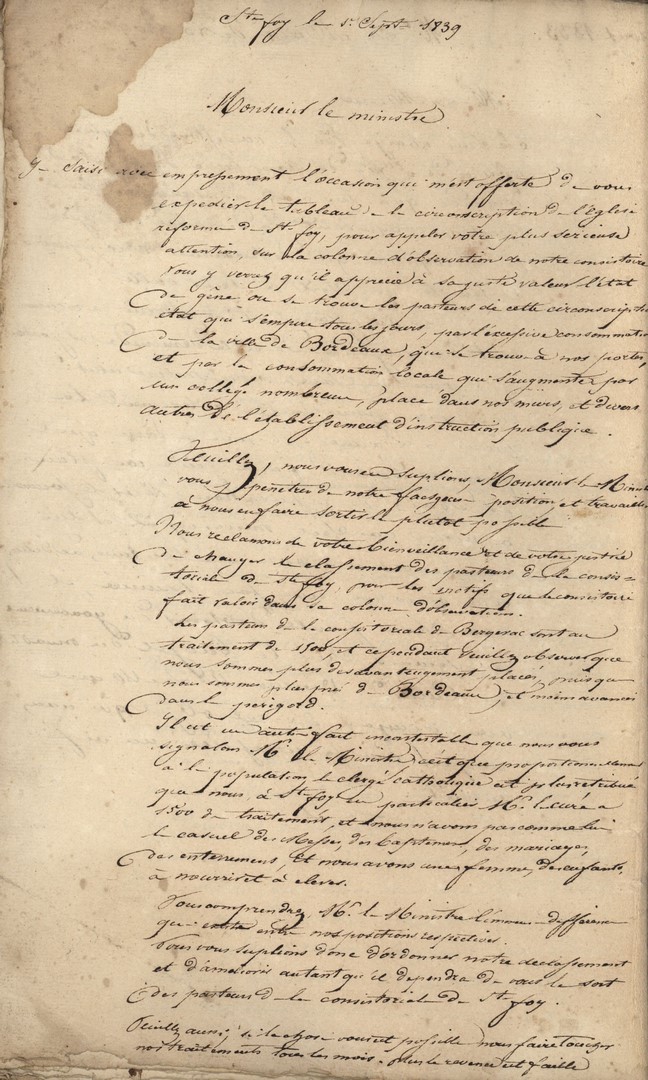 Ste foy le 1r Septre 1839
Monsieur le ministre
Je saisi avec empressement l'occasion qui m'est offerte de vous
expedier le tableau de la circonscription de l'Eglise
reformé de Ste foy, pour appeler vôtre plus serieuse
attention, sur la colonne d'observation de notre consistoire
vous y verrez qu'il apprecie à sa juste valeur l'état
de gêne ou se trouve les pasteurs de cette circonscription
état qui s'empire tous les jours, par l'excessive consommation
de la ville de Bordeaux, qui se trouve à nos portes,
et par la consommation locale qui s'augmente par
un collège nombreux, place dans nos murs, et divers
autres de l'établissement d'instruction publique.
Veuillez, nous vous en suplions, Monsieur le Ministre
vous penetrer de notre facheuse position, et travailler
à nous en faire sortir le plutot possible
Nous reclamons de votre bienveillance et de votre justice
de changer le classement des pasteurs de la consis=
toriale de Ste foy, pour les motifs que le consistoire
fait valoir dans sa colonne d'observation.
Les pasteurs de la consistoriale de Bergerac sont au
traitement de 1500, et cependant Veuillez observer que
nous sommes plus desavantageusement placés, puis que
nous sommes plus près de Bordeaux, et moins avancés
dans le perigord.
Il est un autre fait incontestable que nous vous
signalons Mr le Ministre c'est que proportionnellement
à la population le clergé catholique est plus retribué
que nous, à Ste foy en particulier Mr le curé a
1500 de traitement, et nous n'avons pas comme lui
le casuel des Messes, des baptêmes, des mariages,
des enterremens, et nous avons une femme, des enfants,
à nourrir et à elever.
Vous comprendrez, Mr le Ministre l'immense difference
qui existe entre nos positions respectives.
Nous vous suplions donc d'ordonner notre declassement
et d'ameliorer autant qu'il dependra de vous le sort
des pasteurs de la consistorial de Ste foy.
Veuillez aussi, si la chose vous est possible nous faire toucher
nos traitements tous les mois. le revenu est faible